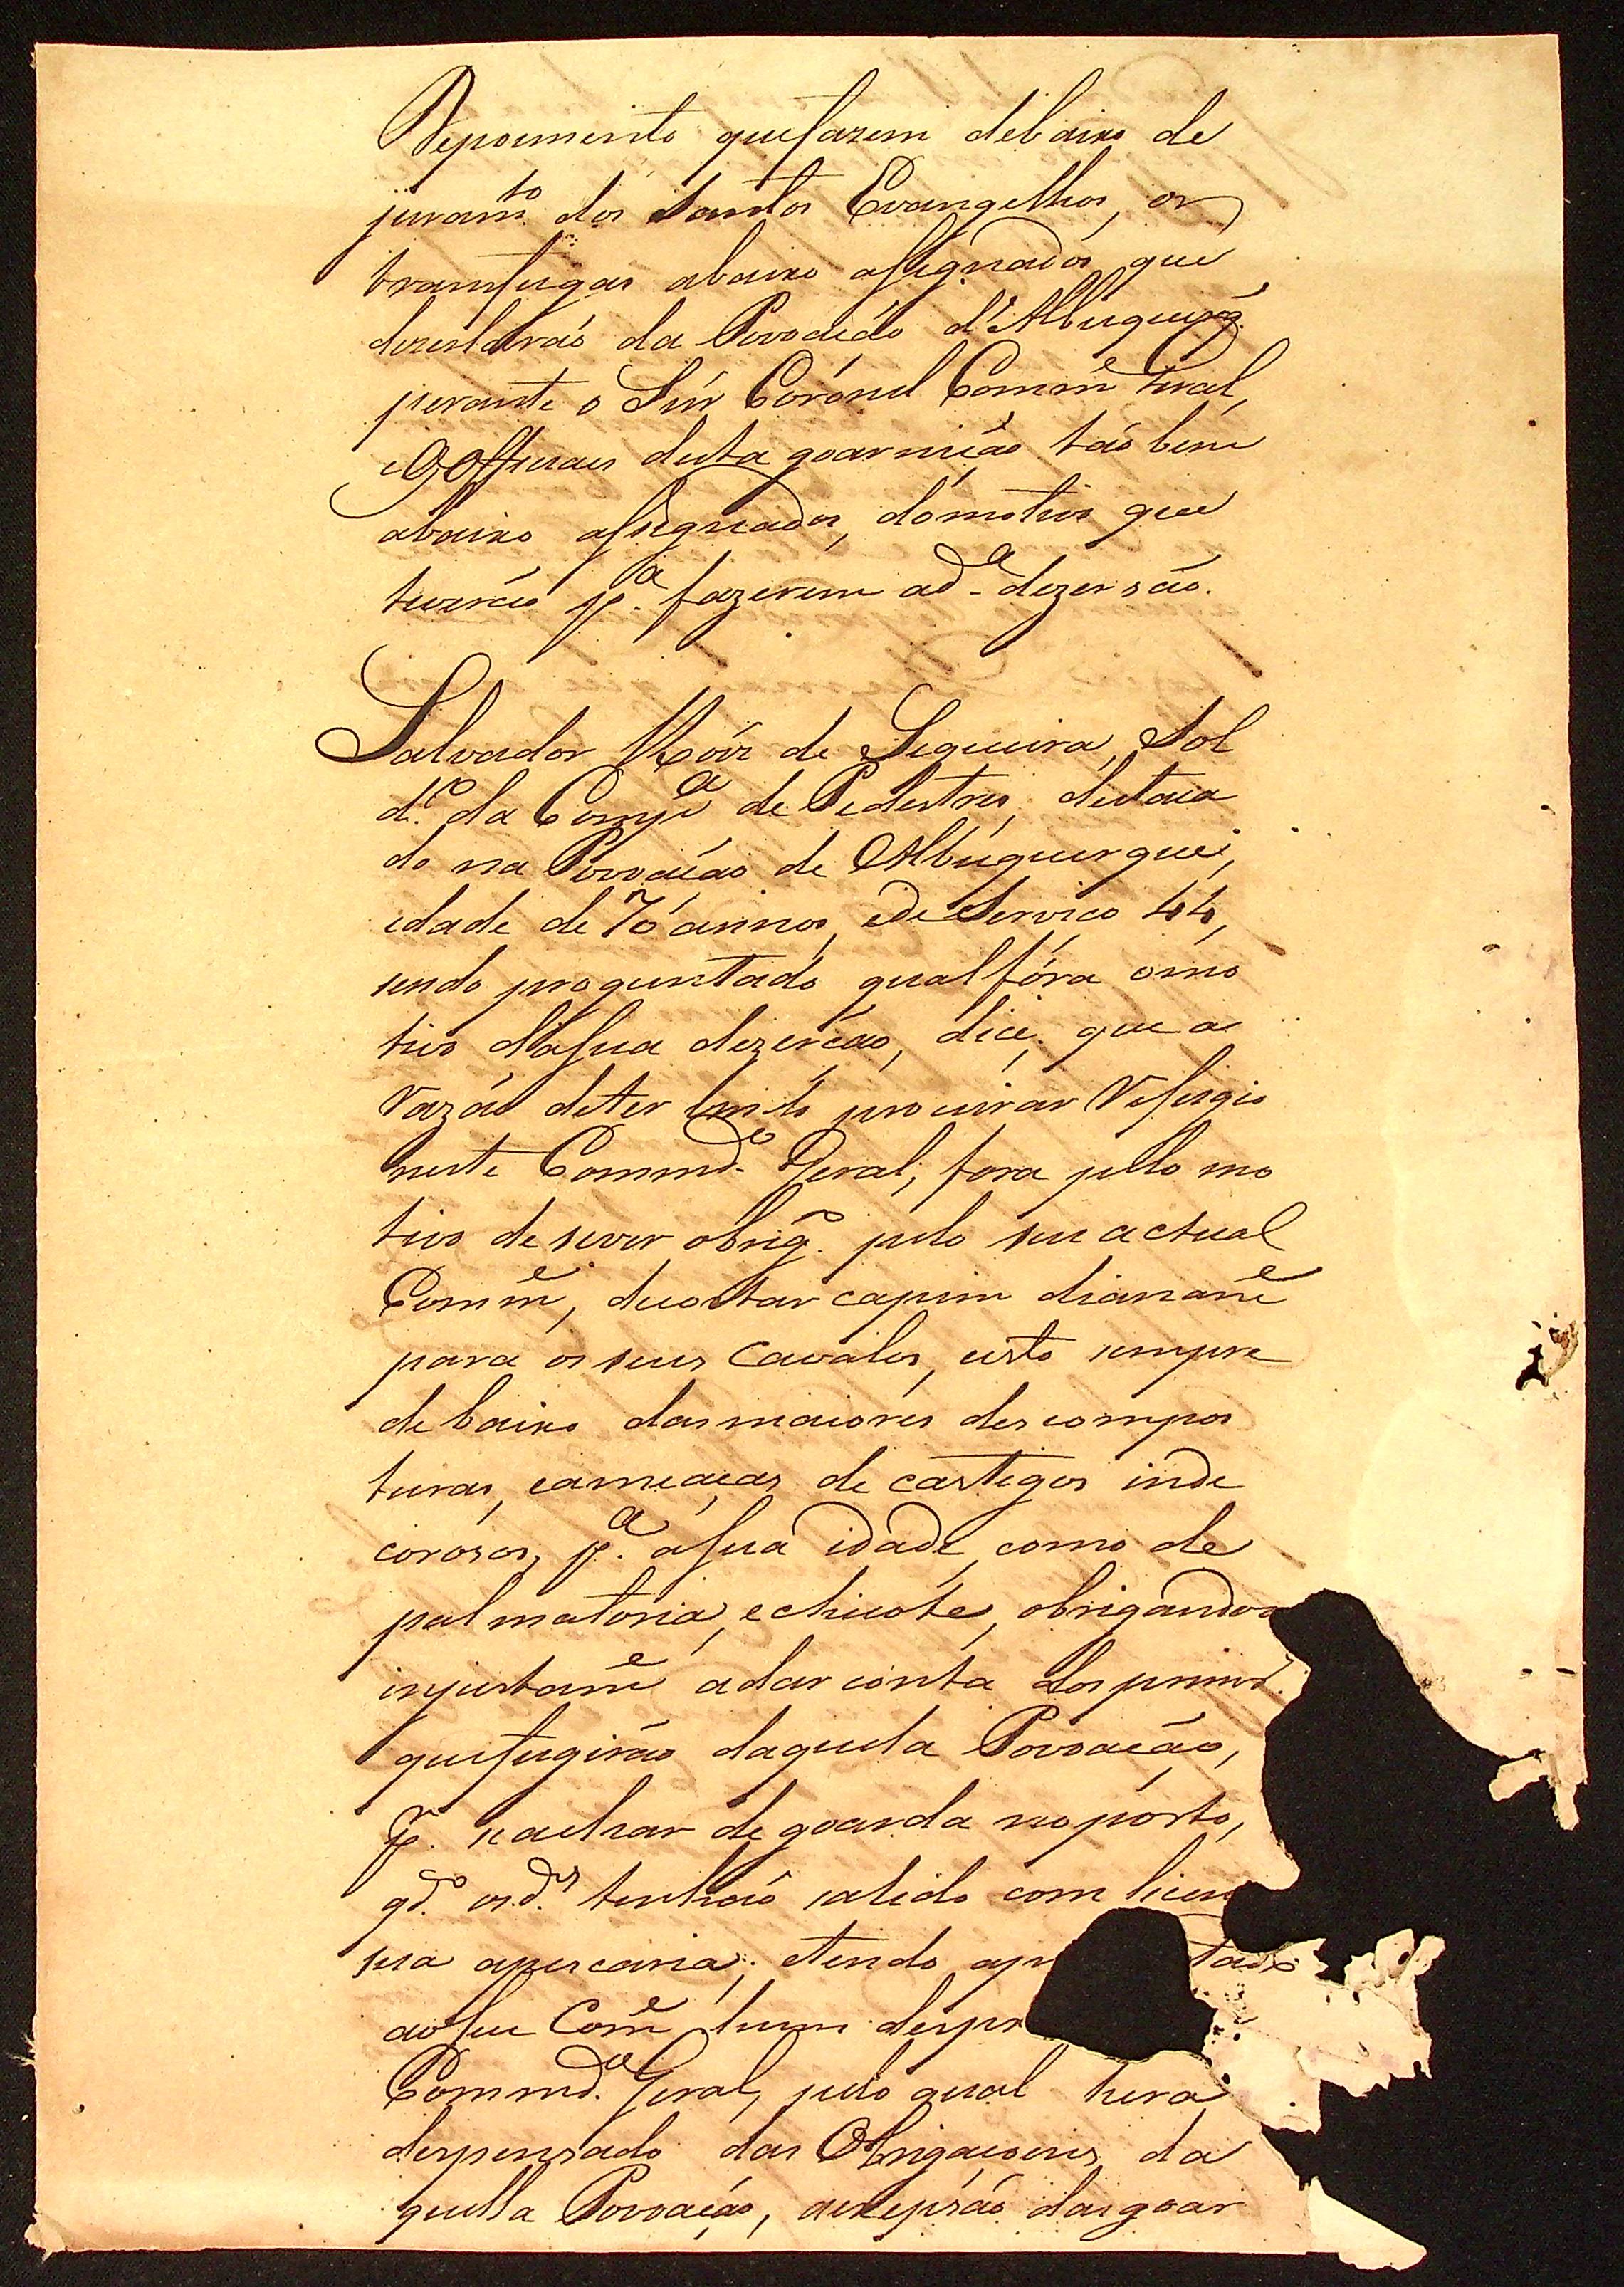 Depoimento que fazem debaixo de
juramto dos Santos Evangelhos, os
transfugas abaixo assignados, que
dezertárão da Povoacão d'Albuquerq.
perante o Snr Coronel Comme Geral,
e Officiaes desta goarnicão tão bem
abaixo assignados, do motivo que
tiverão pa. fazerem a da. dezersão.
Salvador Roiz de Sequeira, Sol
do. da Compa de Pedestres, destaca
do na Povoacão de Albuquerque,
idade de 70 annos, e de Servico 44,
sendo proguntado qual fóra o mo
tivo da sua dezercão, dice, que a
razão de ter vindo procurar Refugio
neste Commdo. Geral, fora pelo mo
tivo de se ver obrigo. pelo seu actual
Comme, de cortar capim diariame
para os seus Cavalos, e isto sempre
debaixo das maiores descompos
turas, e ameacas de castigos inde
corozos, pa. a sua idade, como de
palmatoria, e chicote, obrigandoo
injustame a dar conta dos primos.
que fugirão daquela Povoacão,
pr. se achar de goarda no pórto,
qdo. os ds. tinhão sahido com licen
sua a pescaria; e tendo apr tado
ao seu Come hum despa
Commdo. Geral, pelo qual hera
despensado das Obrigacoens da
quella Povoacão, a excepsão das goar